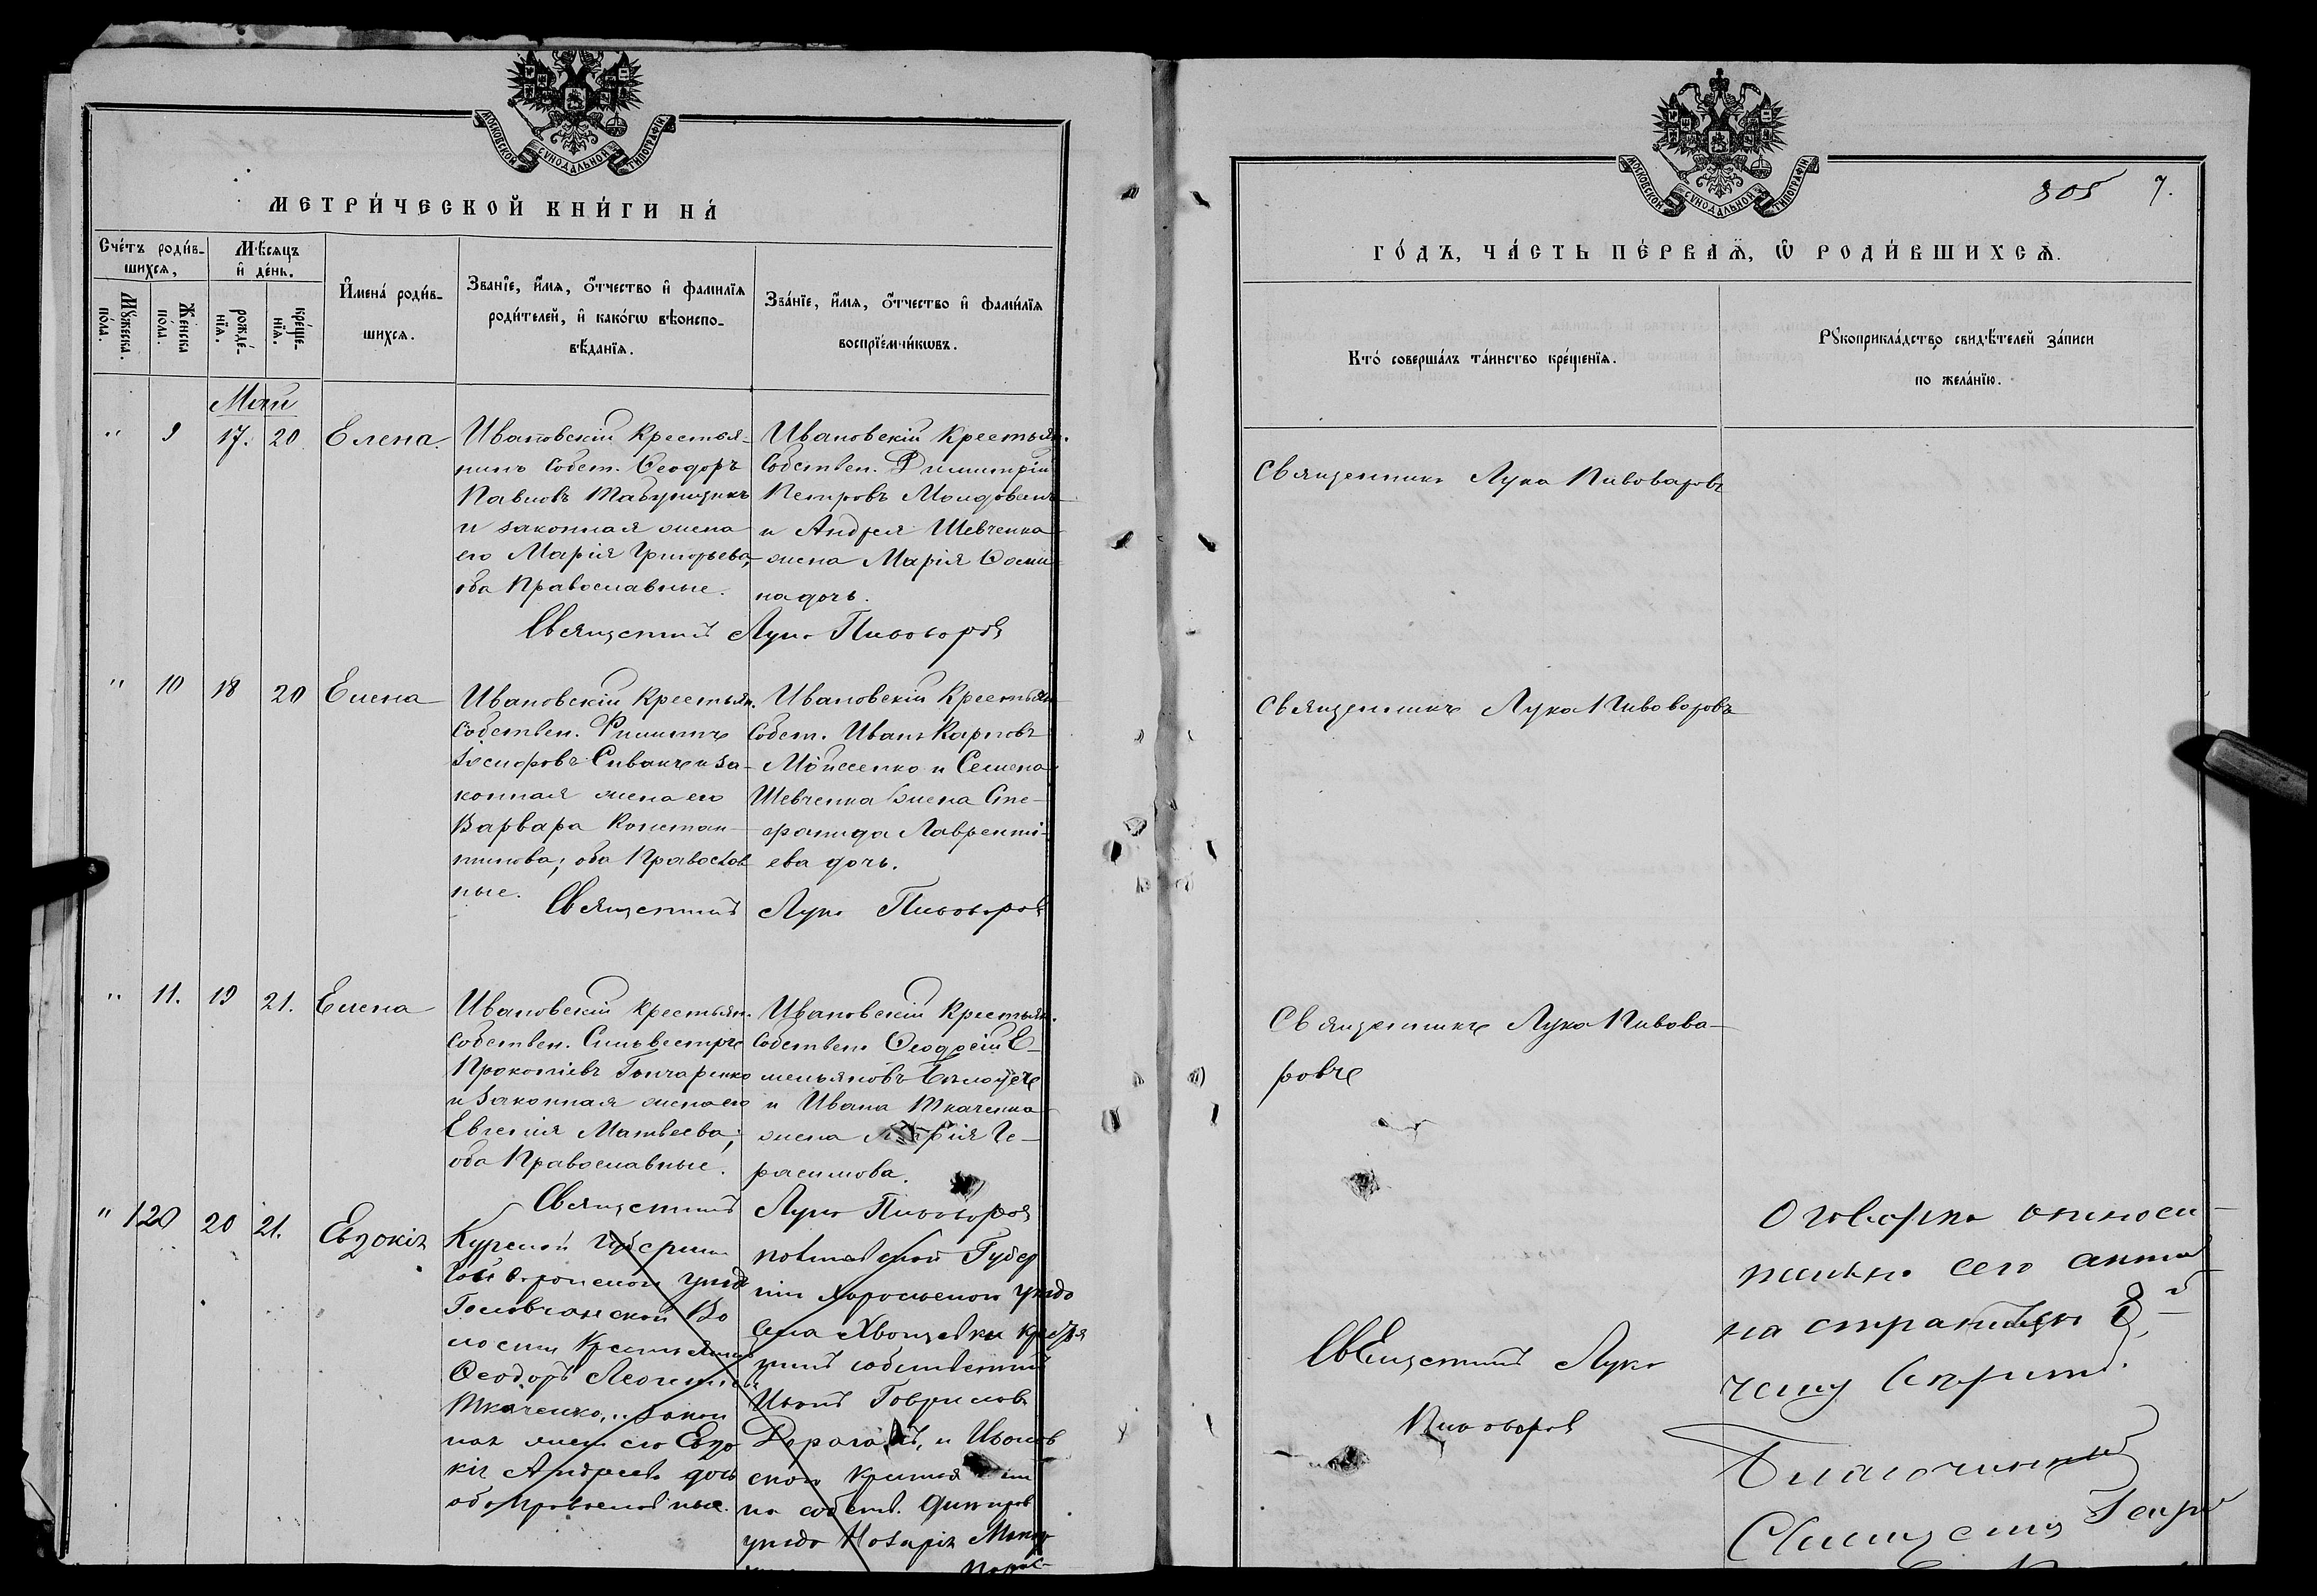 МОСКОВСКОЙ СѴНОДАЛЬНОЙ ТИПОГРАФІИ
МЕТРИ́ЧЕСКОЙ КНИ́ГИ НА́
Сче́тъ роди́в-
шихся,
Мѣсяцъ
и҆ де́нь.
Мꙋ́жеска.
по́ла.
Же́нска
по́ла.
рожде́-
нїѧ.
креще-
нїѧ.
И҆мена́ роди́в-
шихся.
Зва́нїе, и҆́мя, ѻ҆́тчество и҆ фами́лїя
роди́телей, и҆ како́гѡ вѣроиспо-
вѣ́данїя.
Зва́нїе, и҆́мя, ѻ҆́тчество и҆ фами́лїя
воспрїе́мникѡвъ.
Май
" 9 17. 20 Елена.
Ивановскій Крестья-
нинъ Собст. Ѳеодоръ
Павловъ Табунщикъ
и законная жена
его Марія Григорьева,
оба Православные.
Ивановскій Крестьян.
Собствен. Димитрій
Петровъ Молдованъ
и Андрея Шевченка
жена Марія Ѳоми-
на дочь.
Священникъ Лука Пивоваровъ
" 10 18 20 Елена
Ивановскій Крестьян.
Собствен. Филиппъ
Іосифовъ Сивакъ и за-
конная жена его
Варвара Констан-
тинова; оба Православ
ные.
Ивановскій Крестьян
Собст. Иванъ Карповъ
Мойсеенко и Семена
Шевченка жена Сте-
фанида Лавренті-
ева дочь.
Священникъ Лука Пивоваровъ
" 11. 19 21. Елена
Ивановскій Крестьян.
Собствен. Сильвестръ
Прокопіевъ Гончаренко
и законная жена его
Евгенія Матвеева;
оба Православные.
Ивановскій Крестьян.
Собствен Ѳеодосій Е-
мельяновъ
и Ивана Ткаченка
жена Марія Ге-
расимова.
Священникъ Лука Пивоваровъ
" 12 20 21. Евдокія
Курской Губерніи
уезда
Головчанской Во
лости Крестьянинъ
Ѳеодоръ Леонтіевъ
Ткаченко, и закон
ная жена его Евдо
кія Андреева дочь
оба православные.
Полтавской Губер
ніи Хорольскаго уезда
Села Хвощевки Крестья
нинъ собственникъ
Иванъ Гавриловъ
и Иванов
ской Крестья
на собств.
ГО́ДЪ, ЧА́СТЬ ПЕ́РВАЯ, Ѡ҆ РОДИ́ВШИХСЯ.
МОСКОВСКОЙ СѴНОДАЛЬНОЙ ТИПОГРАФІИ
805 7.
Кто́ соверша́лъ та́инство креще́нїя.
Рꙋкоприкла́дство свидѣ́телей за́писи
по жела́нїю.
Священникъ Лука Пивоваровъ
Священникъ Лука Пивоваровъ
Священникъ Лука Пивова-
ровъ
Священникъ Лука
Пивоваровъ
Оговорка относи-
тельно сего акта
на страницѣ 8й
Благочинный